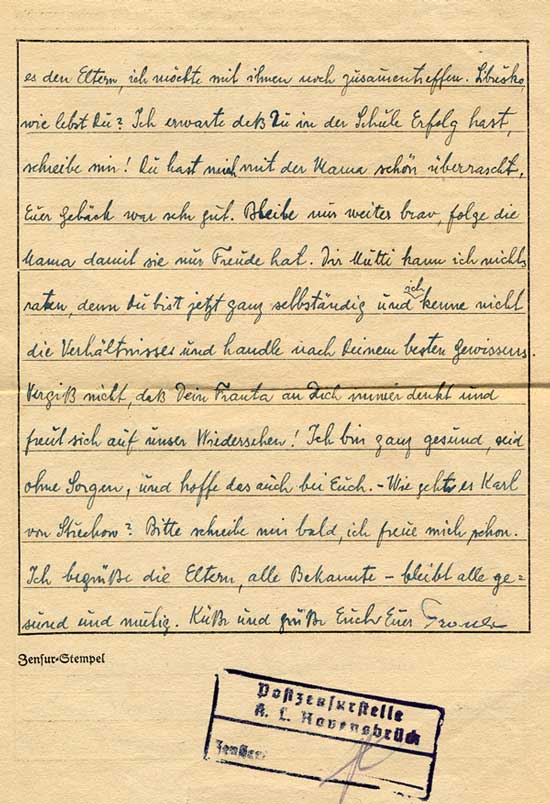 es den Eltern, ich möchte mit ihnen noch zusamentreffen. Libuško,
wie lebst Du? Ich erwarte daß Du in der Schule Erfolg hast,
schreibe mir! Du hast mich mit der Mama schön überrascht,
Euer Gebäck war sehr gut. Bleibe nur weiter brav, folge die
Mama damit sie nur Freude hat. Dir Mutti kann ich nichts
raten, denn Du bist jetzt ganz selbständig und ich kenne nicht
die Verhältnisse und handle nach Deinem besten Gewissens.
Vergiß nicht, daß Dein Franta an Dich immer denkt und
freut sich auf unser Wiedersehen! Ich bin ganz gesund, seid
ohne Sorgen, und hoffe das auch bei Euch. - Wie geht es Karl
von ? Bitte schreibe mir bald, ich freue mich schon.
Ich begrüße die Eltern, alle Bekannte - bleibt alle ge=
sund und mutig. Küße und grüße Euch Euer
Zensur-Stempel
Postzensurstelle
K. L. Ravensbrück
Zensur: